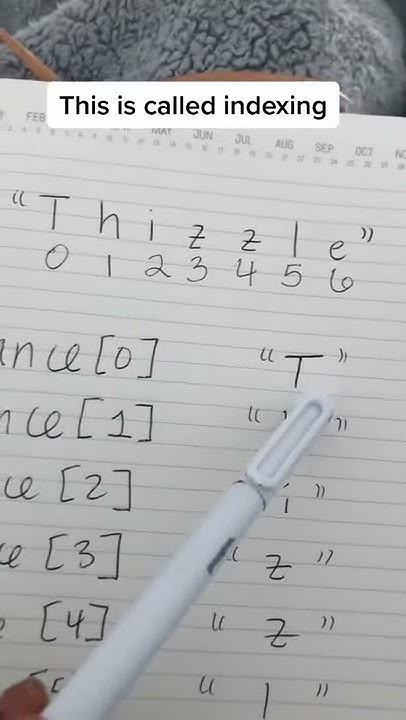 This is called indexing
FEB MAY JUN JUL AUG SEP OCT
"Thizzle"
0 1 2 3 4 5 6
ance[0] "T"
nce[1] " "
ce [2] i"
e [3] " z "
[4] " z "
[5 " l "